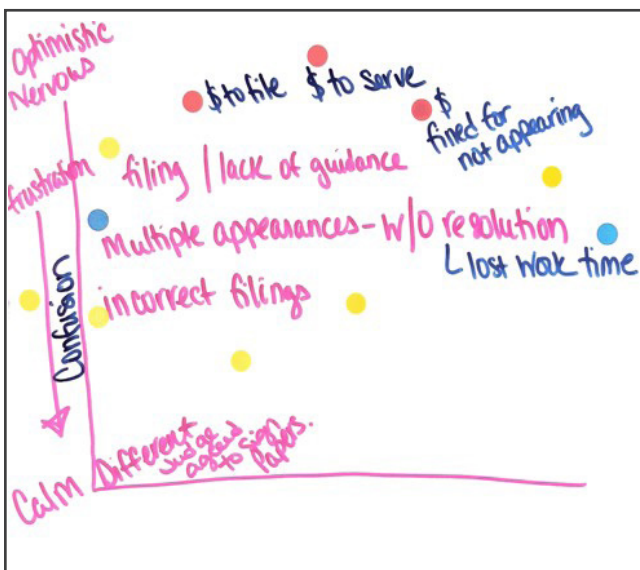 Optimistic
Nervous
$ to file $ to serve
$
fined for
not appearing
frustration
filing / lack of guidance
Multiple appearances - w/o resolution
lost work time
Confusion
incorrect filings
Different
Judge
agreed
to sign
Papers.
Calm